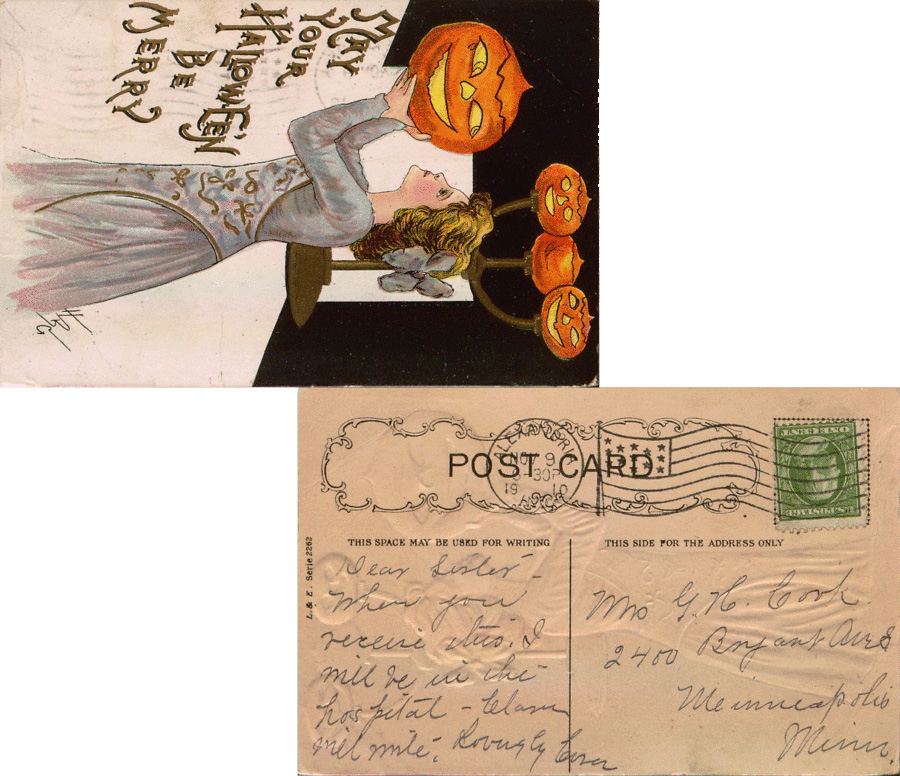 MAY
YOUR
HALLOWE'EN
BE
MERRY
POST CARD
ALEXANDRIA
NOV 9
30P
1910
THIS SPACE MAY BE USED FOR WRITING
THIS SIDE FOR THE ADDRESS ONLY
L. & E. Serie 2262
Dear Sister -
When you
receive this. I
will be in the
hospital - Clara
will write. Lovingly
Mrs G. H. Cook
2400 Bryant Ave S
Minneapolis
Minn.